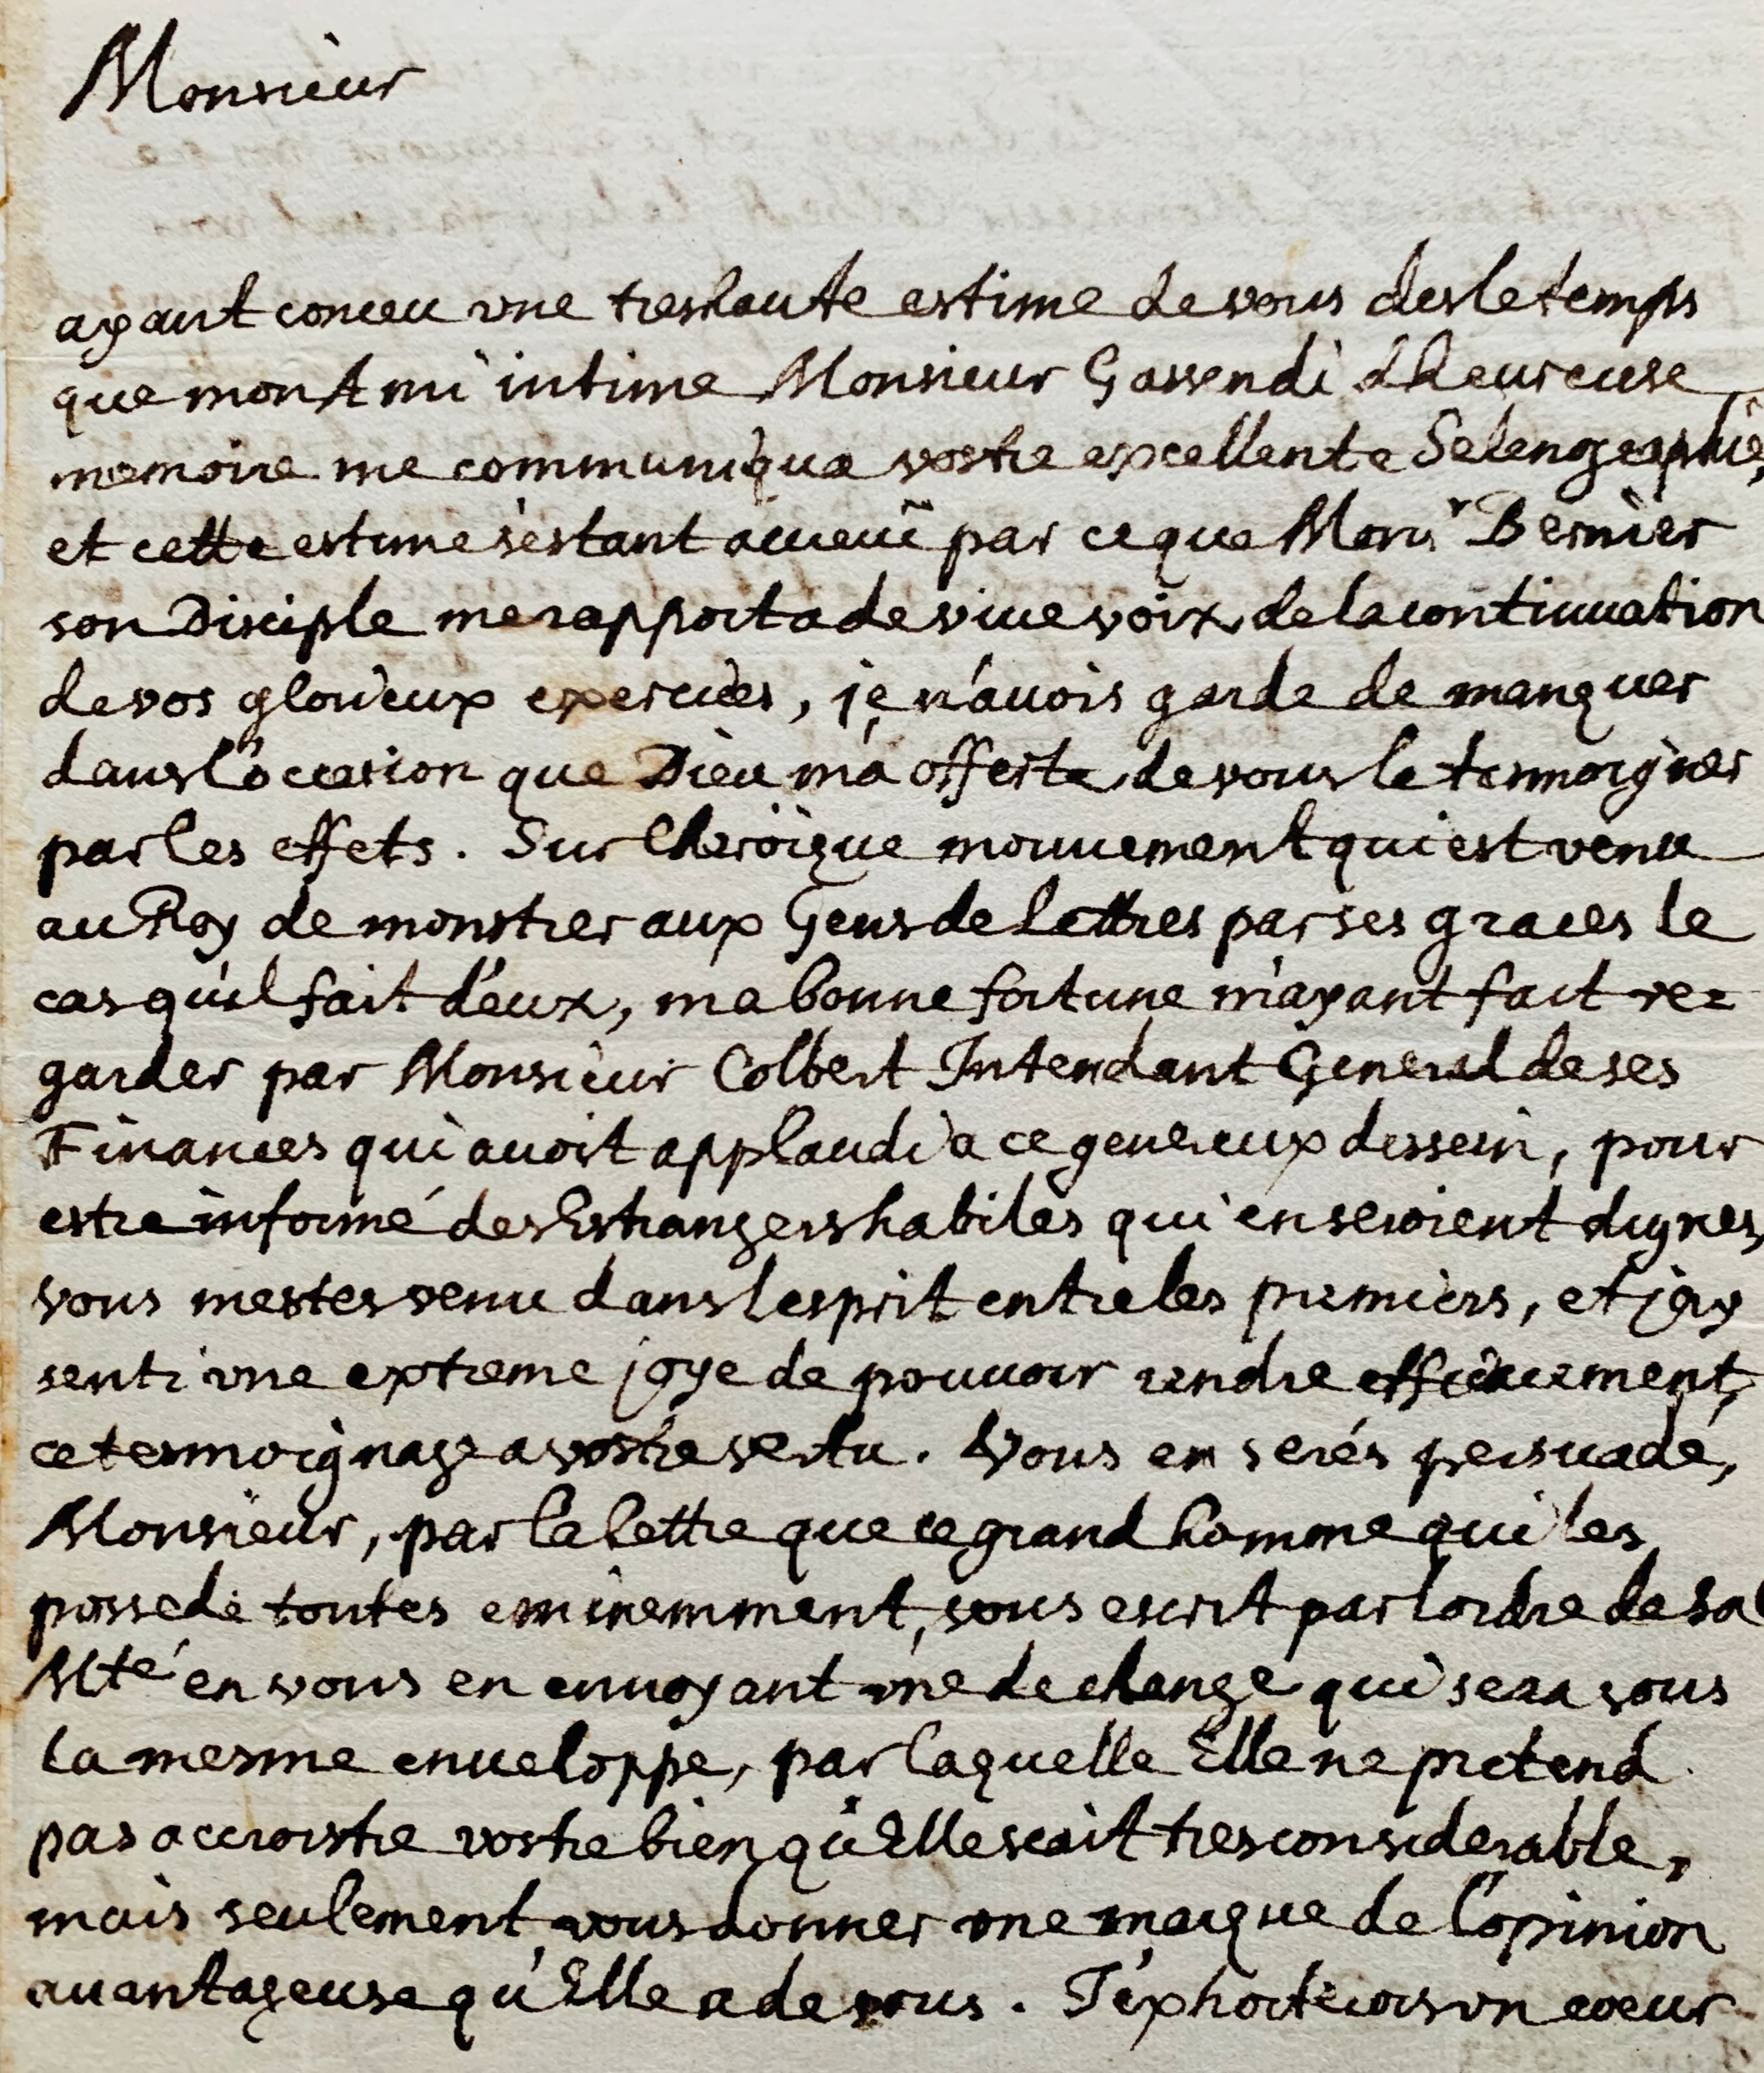 Monsieur
ayant conceu vne treshaute estime de vous des le temps
que mon Ami intime Monsieur Gassendi d'heureuse
memoire me communiqua vostre excellente Selenographie,
et cette estime s'estant accreuë par ce que Monsr Bernier
son Disciple me rapporta de viue voix de la continuation
de vos glorieux exercices, je n'auois garde de manquer
dans l'occasion que Dieu m'a offerte de vous le tesmoigner
par les effets. Sur l'heroique mouuement qui est venu
au Roy de monstrer aux Gens de lettres par ses graces le
cas qu'il fait d'eux, ma bonne fortune m'ayant fait re=
garder par Monsieur Colbert Intendant General de ses
Finances qui auoit applaudi a ce genereux dessein, pour
estre informé des Estrangers habiles qui en seroient dignes,
vous mestes venu dans lesprit entre les premiers, et jay
senti vne extreme joye de pouuoir rendre efficacement,
ce tesmoignage a vostre vertu. Vous en serés persuadé,
Monsieur, par la lettre que ce grand homme qui les
possede toutes eminemment, vous escrit par lordre de Sa
Mté en vous en enuoyant vne de change qui sera sous
la mesme enueloppe, par laquelle Elle ne pretend
pas accroistre vostre bien qu'Elle scait tres considerable,
mais seulement vous donner vne marque de l'opinion
auantageuse qu'Elle a de vous. J'exhorterois vn coeur